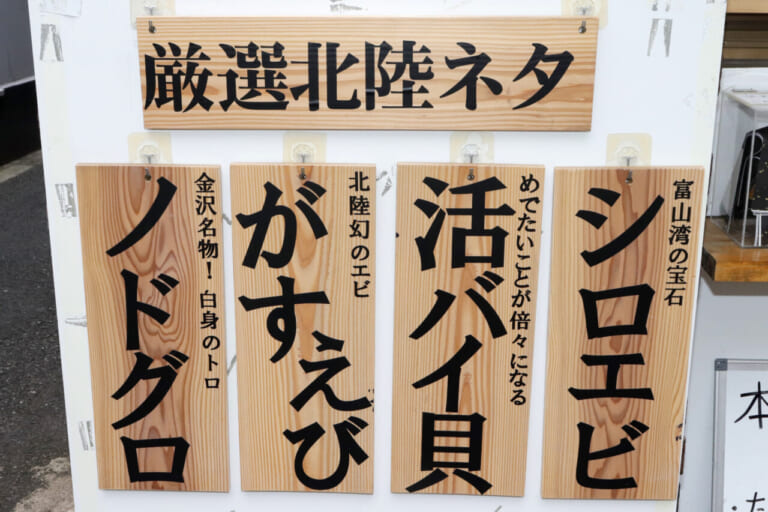 厳選北陸ネタ
富山湾の宝石
シロエビ
めでたいことが倍々になる
活バイ貝
北陸幻のエビ
がすえび
金沢名物！白身のトロ
ノドグロ
本